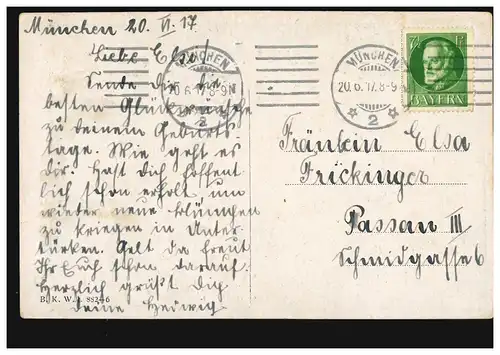 München 20. VI. 17
Liebe Else!
Sende Dir die
besten Glückwünsche
zu deinem Geburts
tage. Wie geht es
dir. Hast dich hoffent
lich schon erholt um
wieder neue
zu kriegen in Unter
türken. Gelt da freut
Ihr Euch schon darauf.
Herzlich grüßt dich
deine Hedwig
B. K. W. I. 882-6
MÜNCHEN.
20.6.17.8-9N
2
MÜNCHEN.
20.6.17.8-9
2
7½
BAYERN
Fräulein Elsa
Frickinger
Passau III
Schmidgasse 6